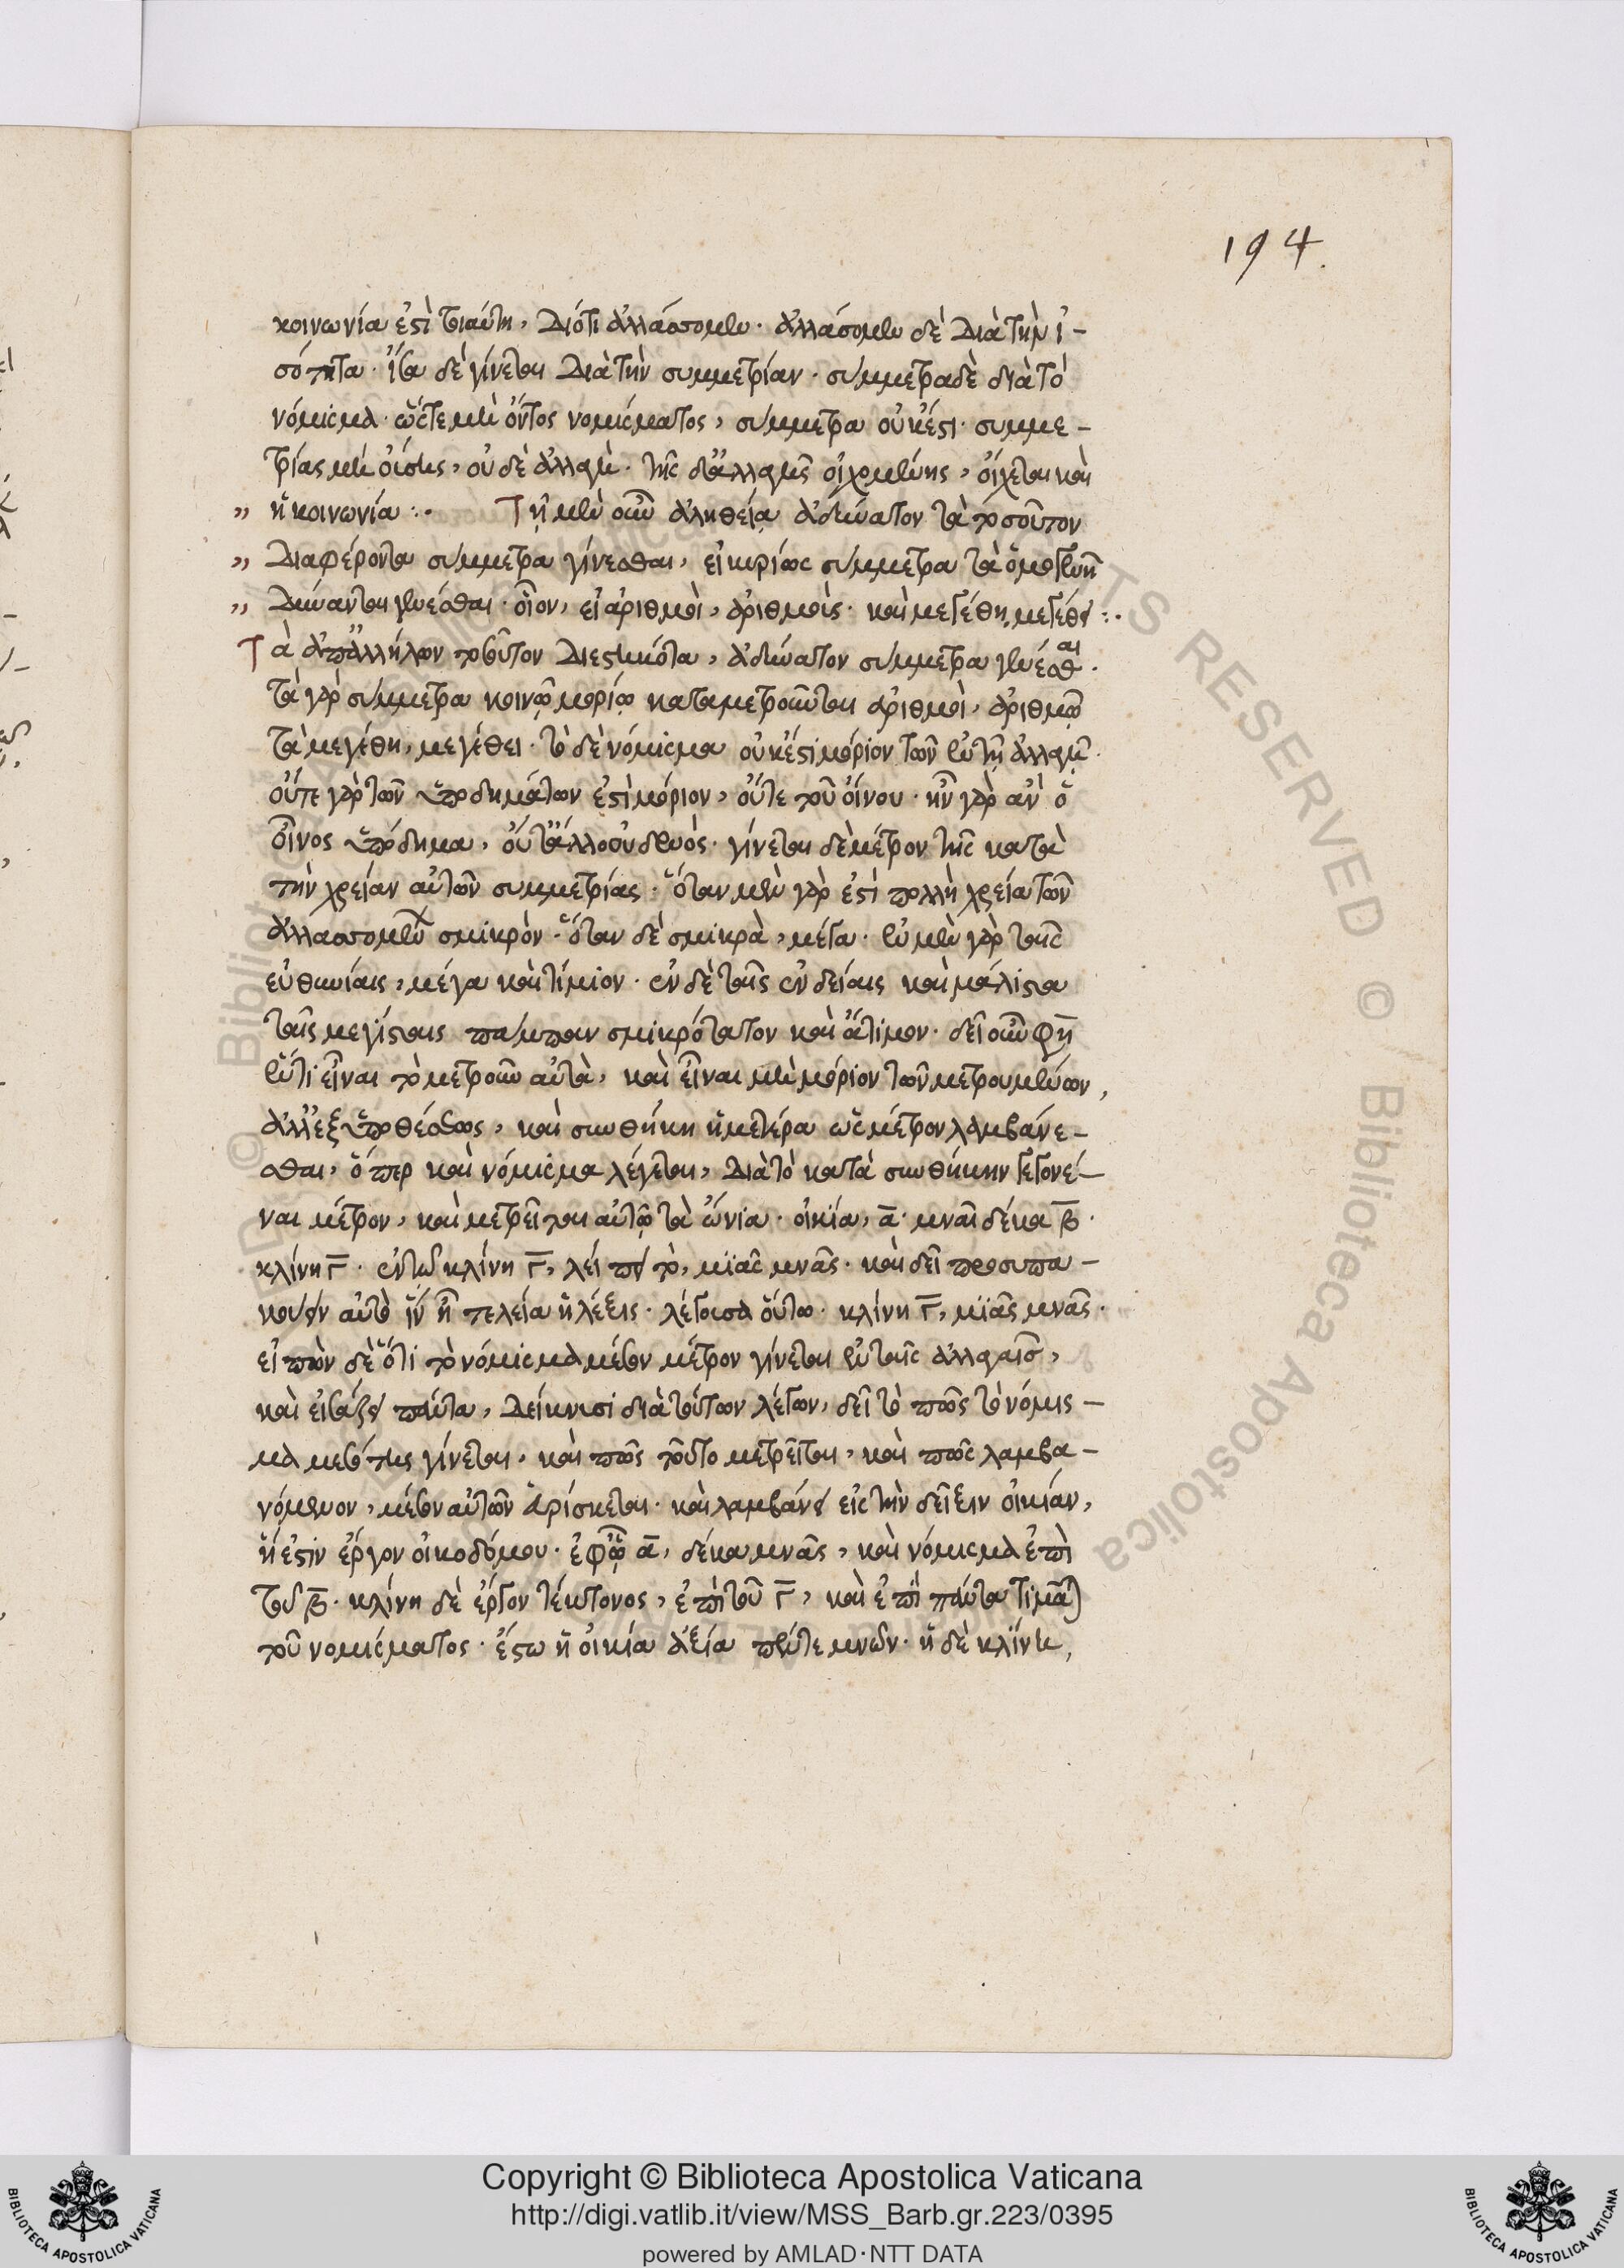 194.
κοινωνία ἐστὶ τοιαύτη, διότι ἀλλάσσομεν. ἀλλάσομεν δὲ διὰ τὴν ἰ-
σότητα. ἴσα δὲ γίνεται διὰ τὴν συμμετρίαν. σύμμετρα δὲ διὰ τὸ
νόμισμα. ὥστε μὴ ὄντος νομίσματος, σύμμετρα οὐκ ἔστι. συμμε-
τρίας μὴ οὔσης, οὐδὲ ἀλλαγή. τῆς δ' ἀλλαγῆς οἰχομένης, οἴχεται καὶ
" ἡ κοινωνία :. Τῇ μὲν οὖν ἀληθείᾳ ἀδύνατον τὰ τοσοῦτον
" διαφέροντα σύμμετρα γίνεσθαι, εἰ κυρίως σύμμετρα τὰ ὁμογενῆ
" δύνανται γενέσθαι. οἷον, εἰ ἀριθμοὶ, ἀριθμοῖς. καὶ μεγέθη, μεγέθει :.
Τὰ ἀπ' ἀλλήλων τοσοῦτον διεστηκότα, ἀδύνατον σύμμετρα γενέσθαι.
τὰ γὰρ σύμμετρα κοινῷ μορίῳ καταμετροῦνται ἀριθμοὶ, ἀριθμῷ
τὰ μεγέθη, μεγέθει. τὸ δὲ νόμισμα οὐκ ἔστι μόριον τῶν ἐν τῇ ἀλλαγῇ.
οὔτε γὰρ τῶν ὑποδημάτων ἐστὶ μόριον, οὔτε τοῦ οἴνου. ἦν γὰρ ἂν ὁ
οἶνος ὑπόδημα, οὔτ' ἄλλο οὐδενός. γίνεται δὲ μέτρον τῆς κατὰ
τὴν χρείαν αὐτῶν συμμετρίας. ὅταν μὲν γὰρ ἐστὶ πολλὴ χρεία τῶν
ἀλλασσομένων σμικρὸν. ὅταν δὲ σμικρὰ, μέγα. ἐν μὲν γὰρ ταῖς
εὐθυνίαις, μέγα καὶ τίμιον. ἐν δὲ ταῖς ἐνδείαις καὶ μάλιστα
ταῖς μεγίσταις πάμπαν σμικρότατον καὶ ἄτιμον. δεῖ οὖν φησὶ
ἕν τι εἶναι τὸ μετροῦν αὐτὰ, καὶ εἶναι μὴ μόριον τῶν μετρουμένων,
ἀλλ' ἐξ ὑποθέσεως, καὶ συνθήκη ἡμετέρα ὡς μέτρον λαμβάνε-
σθαι, ὅπερ καὶ νόμισμα λέγεται, διὰ τὸ κατὰ συνθήκην γεγονέ-
ναι μέτρον, καὶ μετρεῖται αὐτῷ τὰ ὤνια. οἰκία, α. μναῖ δέκα β.
κλίνη γ. ἐν τῷ κλίνη γ, λείπει τὸ, μιᾶς μνᾶς. καὶ δεῖ προσυπα-
κούειν αὐτὸ ἵν' ᾖ τελεία ἡ λέξις. λέγουσα οὕτω. κλίνη γ, μιᾶς μνᾶς.
εἰπὼν δὲ ὅτι τὸ νόμισμα μέσον μέτρον γίνεται ἐν ταῖς ἀλλαγαῖς,
καὶ εἰσάζει πάντα, δείκνυσι διὰ τούτων λέγων, δεῖ τὸ πῶς τὸ νόμισ-
μα μεσότης γίνεται, καὶ πῶς τοῦτο μετρεῖται, καὶ πῶς λαμβα-
νόμενον, μέσον αὐτῶν εὑρίσκεται. καὶ λαμβάνει εἰς τὴν δεῖξιν οἰκίαν,
ἥ ἐστιν ἔργον οἰκοδόμου. ἐφ' ᾧ α, δέκα μνᾶς, καὶ νόμισμα ἐπὶ
τοῦ β. κλίνη δὲ ἔργον τέκτονος, ἐπὶ τοῦ γ, καὶ ἐπεὶ πάντα τιμᾶται
τοῦ νομίσματος. ἔστω ἡ οἰκία ἀξία πέντε μνῶν. ἡ δὲ κλίνη,
Copyright © Biblioteca Apostolica Vaticana
http://digi.vatlib.it/view/MSS_Barb.gr.223/0395
powered by AMLAD·NTT DATA